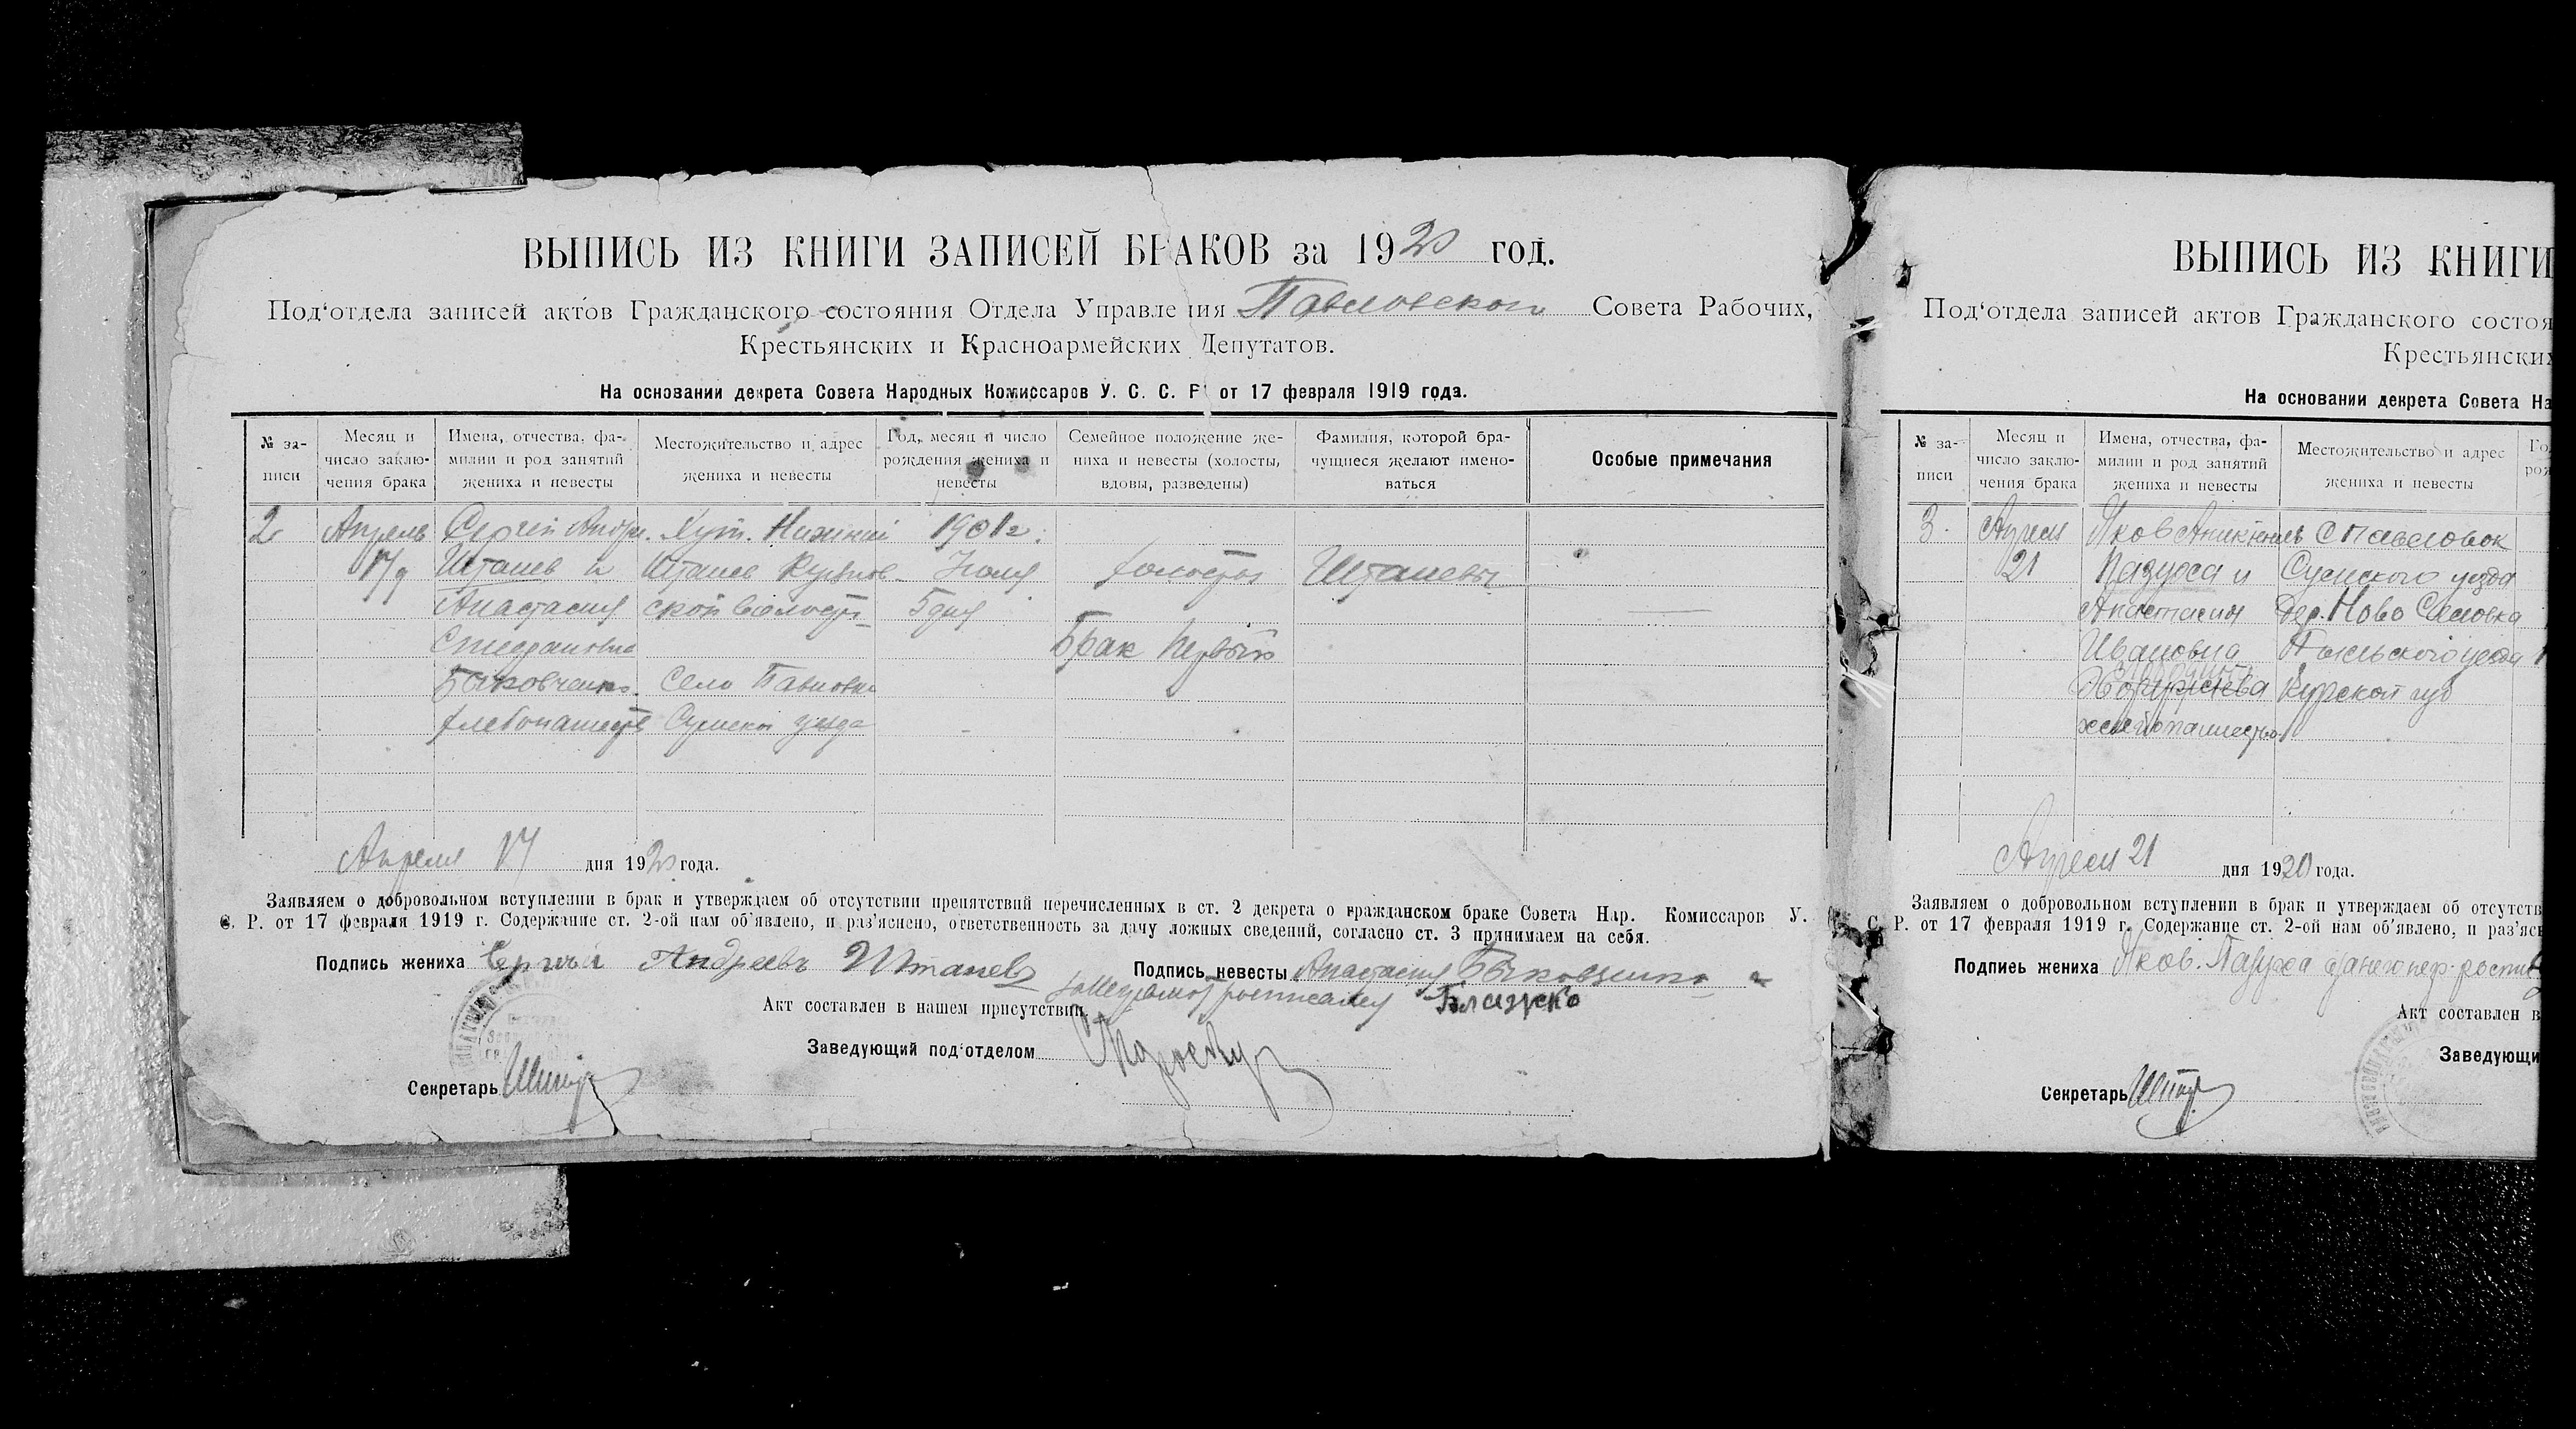 ВЫПИСЬ ИЗ КНИГИ ЗАПИСЕЙ БРАКОВ за 1920 год.
Под‘отдела записей актов Гражданского состояния Отдела Управления Павловского Совета Рабочих,
Крестьянских и Красноармейских Депутатов.
На основании декрета Совета Народных Комиссаров У. С. С. Р. от 17 февраля 1919 года.
№ за-
писи
Месяц и
число заклю-
чения брака
Имена, отчества, фа-
милии и род занятий
жениха и невесты
Местожительство и адрес
жениха и невесты
Год, месяц и число
рождения жениха и
невесты
Семейное положение же-
ниха и невесты (холосты,
вдовы, разведены)
Фамилия, которой бра-
чущиеся желают имено-
ваться
Особые примечания
2
Апрель
17
Сергей Андре.
Штанев и
Анастасия
Степановна
Быковченко
хлебопашеств
Хут. Нижний
Штанев
ской волости
Село Павловки
Сумской уезда
1901 г.
5 дня
холостой
Брак первый
Штаневы
Апреля 17 дня 1920 года.
Заявляем о добровольном вступлении в брак и утверждаем об отсутствии препятствий перечисленных в ст. 2 декрета о гражданском браке Совета Нар. Комиссаров У.
С. Р. от 17 февраля 1919 г. Содержание ст. 2-ой нам об‘явлено, и раз‘яснено, ответственность за дачу ложных сведений, согласно ст. 3 принимаем на себя.
Подпись жениха Сергей Андреевъ Штаневъ
Подпись невесты Анастасия Быковченко
неграмот росписался
Акт составлен в нашем присутствии
Заведующий под‘отделом
Секретарь
ВЫПИСЬ ИЗ КНИГИ
Под‘отдела записей актов Гражданского состоя
Крестьянских
На основании декрета Совета На
№ за-
писи
Месяц и
число заклю-
чения брака
Имена, отчества, фа-
милии и род занятий
жениха и невесты
Местожительство и адрес
жениха и невесты
Го
рож
3
Апреля
21
Яков
Пазуха и
Анастасия
Ивановна
хлебопашество
С Павловок
Сумского уезда
Дер. Ново
уезда
Курской губ
Апреля 21 дня 1920 года.
Заявляем о добровольном вступлении в брак и утверждаем об отсутств
С. Р. от 17 февраля 1919 г. Содержание ст. 2-ой нам об‘явлено, и раз‘яс
Подпись жениха Яков Пазуха
Акт составлен в
Заведующи
Секретарь